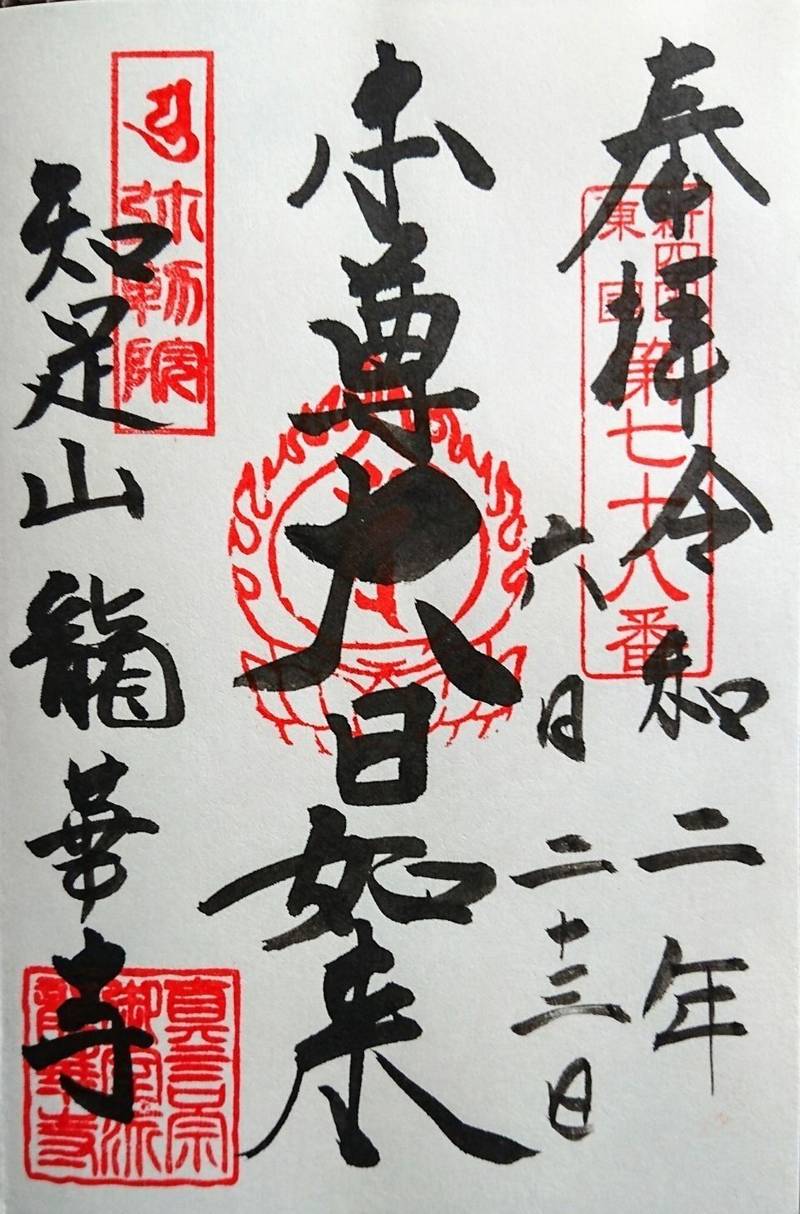 奉拝令和二年
六月二十三日
新四国
東国
第七十八番
本尊大日如来
弥勒院
知足山龍華寺
真言宗
御室派
龍華寺